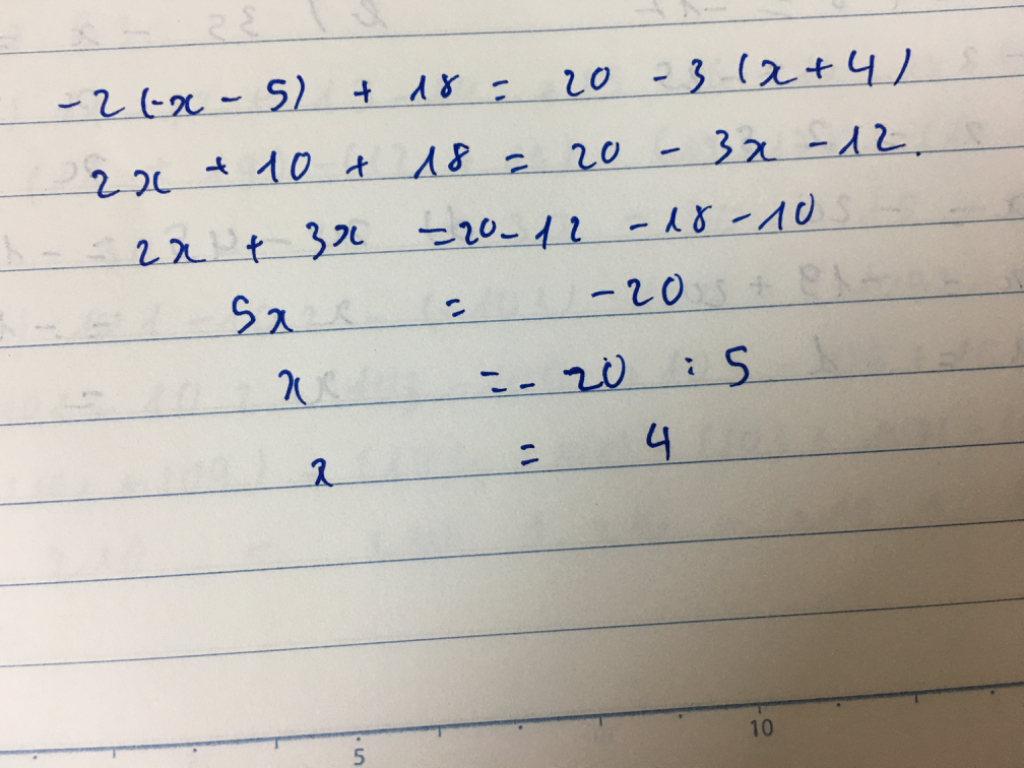 -2(-x - 5) + 18 = 20 - 3(x + 4)
2x + 10 + 18 = 20 - 3x - 12.
2x + 3x = 20 - 12 - 18 - 10
5x = -20
x = - 20 : 5
x = 4
5 10